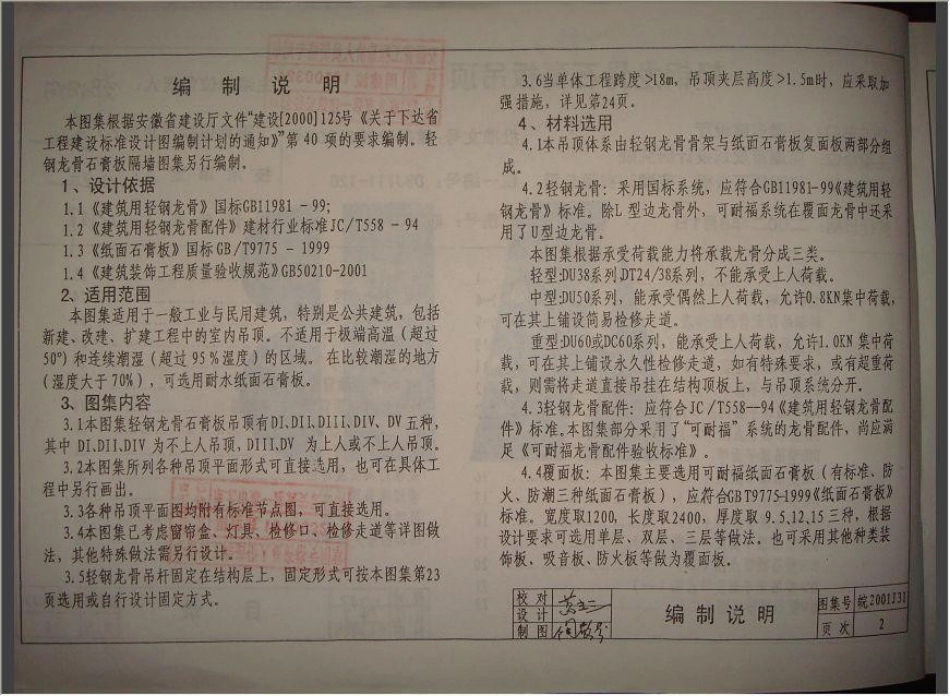 编制说明
本图集根据安徽省建设厅文件“建设[2000]125号《关于下达省
工程建设标准设计图编制计划的通知》”第 40 项的要求编制。轻
钢龙骨石膏板隔墙图集另行编制。
1、设计依据
1.1《建筑用轻钢龙骨》国标GB11981－99;
1.2《建筑用轻钢龙骨配件》建材行业标准JC/T558－94
1.3《纸面石膏板》国标GB/T9775－1999
1.4《建筑装饰工程质量验收规范》GB50210-2001
2、适用范围
本图集适用于一般工业与民用建筑，特别是公共建筑，包括
新建、改建、扩建工程中的室内吊顶。不适用于极端高温（超过
50°）和连续潮湿（超过 95％湿度）的区域。在比较潮湿的地方
(湿度大于70%)，可选用耐水纸面石膏板。
3、图集内容
3.1本图集轻钢龙骨石膏板吊顶有DI、DII、DIII、DIV、DV五种，
其中 DI、DII、DIV 为不上人吊顶，DIII、DV 为上人或不上人吊顶。
3.2本图集所列各种吊顶平面形式可直接选用，也可在具体工
程中另行画出。
3.3各种吊顶平面图均附有标准节点图，可直接选用。
3.4本图集已考虑窗帘盒、灯具、检修口、检修走道等详图做
法，其他特殊做法需另行设计。
3.5轻钢龙骨吊杆固定在结构层上，固定形式可按本图集第23
页选用或自行设计固定方式。
3.6当单体工程跨度>18m，吊顶夹层高度>1.5m时，应采取加
强措施，详见第24页。
4、材料选用
4.1本吊顶体系由轻钢龙骨骨架与纸面石膏板复面板两部分组
成。
4.2轻钢龙骨：采用国标系统，应符合GB11981-99《建筑用轻
钢龙骨》标准。除L 型边龙骨外，可耐福系统在覆面龙骨中还采
用了U型边龙骨。
本图集根据承受荷载能力将承载龙骨分成三类。
轻型:DU38系列,DT24/38系列，不能承受上人荷载。
中型:DU50系列，能承受偶然上人荷载，允许0.8KN集中荷载，
可在其上铺设简易检修走道。
重型:DU60或DC60系列，能承受上人荷载，允许1.0KN 集中荷
载，可在其上铺设永久性检修走道，如有特殊要求，或有超重荷
载，则需将走道直接吊挂在结构顶板上，与吊顶系统分开。
4.3轻钢龙骨配件：应符合JC/T558—94《建筑用轻钢龙骨配
件》标准。本图集部分采用了“可耐福”系统的龙骨配件，尚应满
足《可耐福龙骨配件验收标准》。
4.4覆面板：本图集主要选用可耐福纸面石膏板（有标准、防
火、防潮三种纸面石膏板），应符合GBT9775-1999《纸面石膏板》
标准。宽度取1200，长度取2400，厚度取 9.5、12、15 三种，根据
设计要求可选用单层、双层、三层等做法。也可采用其他种类装
饰板、吸音板、防火板等做为覆面板。
校 对
设 计
制 图
编制说明
图集号 皖2001J31
页 次 2